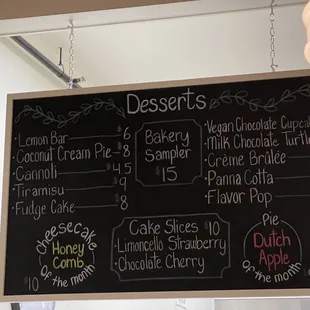 Desserts
· Lemon Bar $6
· Coconut Cream Pie $8
· Cannoli $4.5
· Tiramisu $9
· Fudge Cake $8
Bakery
Sampler
$15
· Vegan Chocolate Cupca
· Milk Chocolate Turtl
· Crème Brûlée
· Panna Cotta
· Flavor Pop
Cheesecake
Honey
Comb
of the month
$10
Cake Slices $10
· Limoncello Strawberry
· Chocolate Cherry
Pie
Dutch
Apple
of the Month